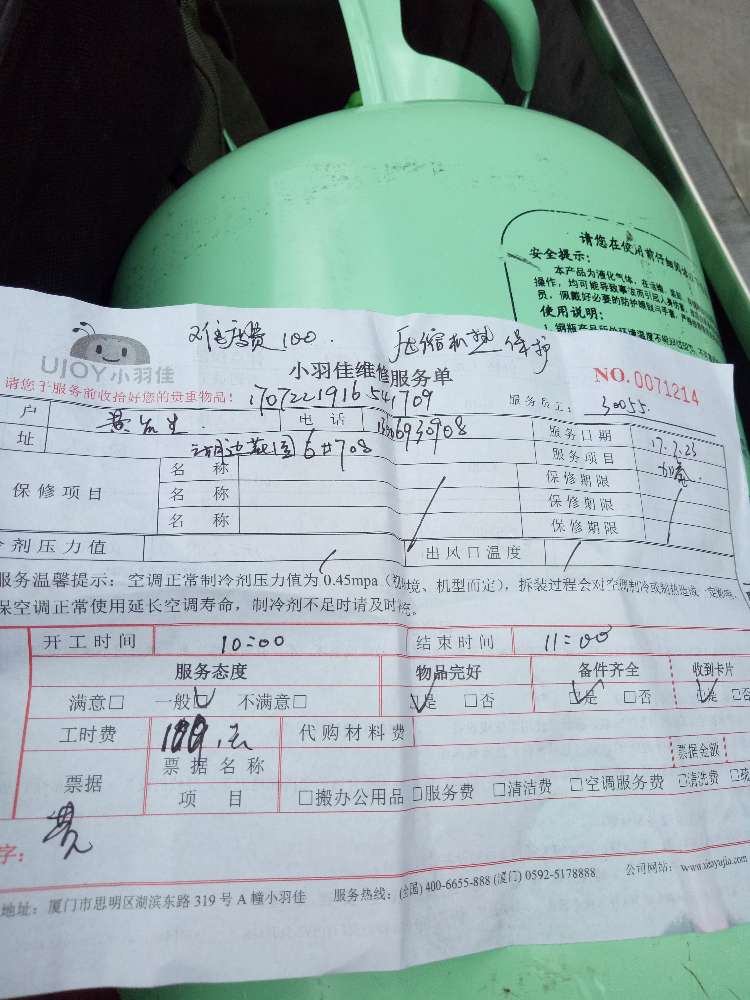 请您在使用前仔细阅
安全提示：
本产品为液化气体，在运输、
操作，均可能导致事故而引起人身伤害，
员，佩戴好必要的防护
使用说明：
修费100. 压缩机 保护
UJOY小羽佳
小羽佳维修服务单
NO.0071214
请您于服务前收拾好您的贵重物品！
1707221916541709
服务员工： 30055
户 黄先生 电话 服务日期 17.7.23
址 6#708 服务项目
保修项目
名称 保修期限
名称 保修期限
名称 保修期限
冷剂压力值 出风口温度
服务温馨提示：空调正常制冷剂压力值为0.45mpa（ 境、机型而定），拆装过程会对空调制冷或制热造成
保空调正常使用延长空调寿命，制冷剂不足时请及时 充。
开工时间 10:00 结束时间 11:00
服务态度 物品完好 备件齐全 收到卡片
满意□ 一般□ 不满意□ □是 □否 □是 □否 □是 □否
工时费 100.元 代购材料费
票据 票据名称 票据金额
项目 □搬办公用品 □服务费 □清洁费 □空调服务费 □清洗费
字：
地址：厦门市思明区湖滨东路319号A幢小羽佳 服务热线：(全国)400-6655-888(厦门)0592-5178888 公司网站：www.xiaoyujia.com